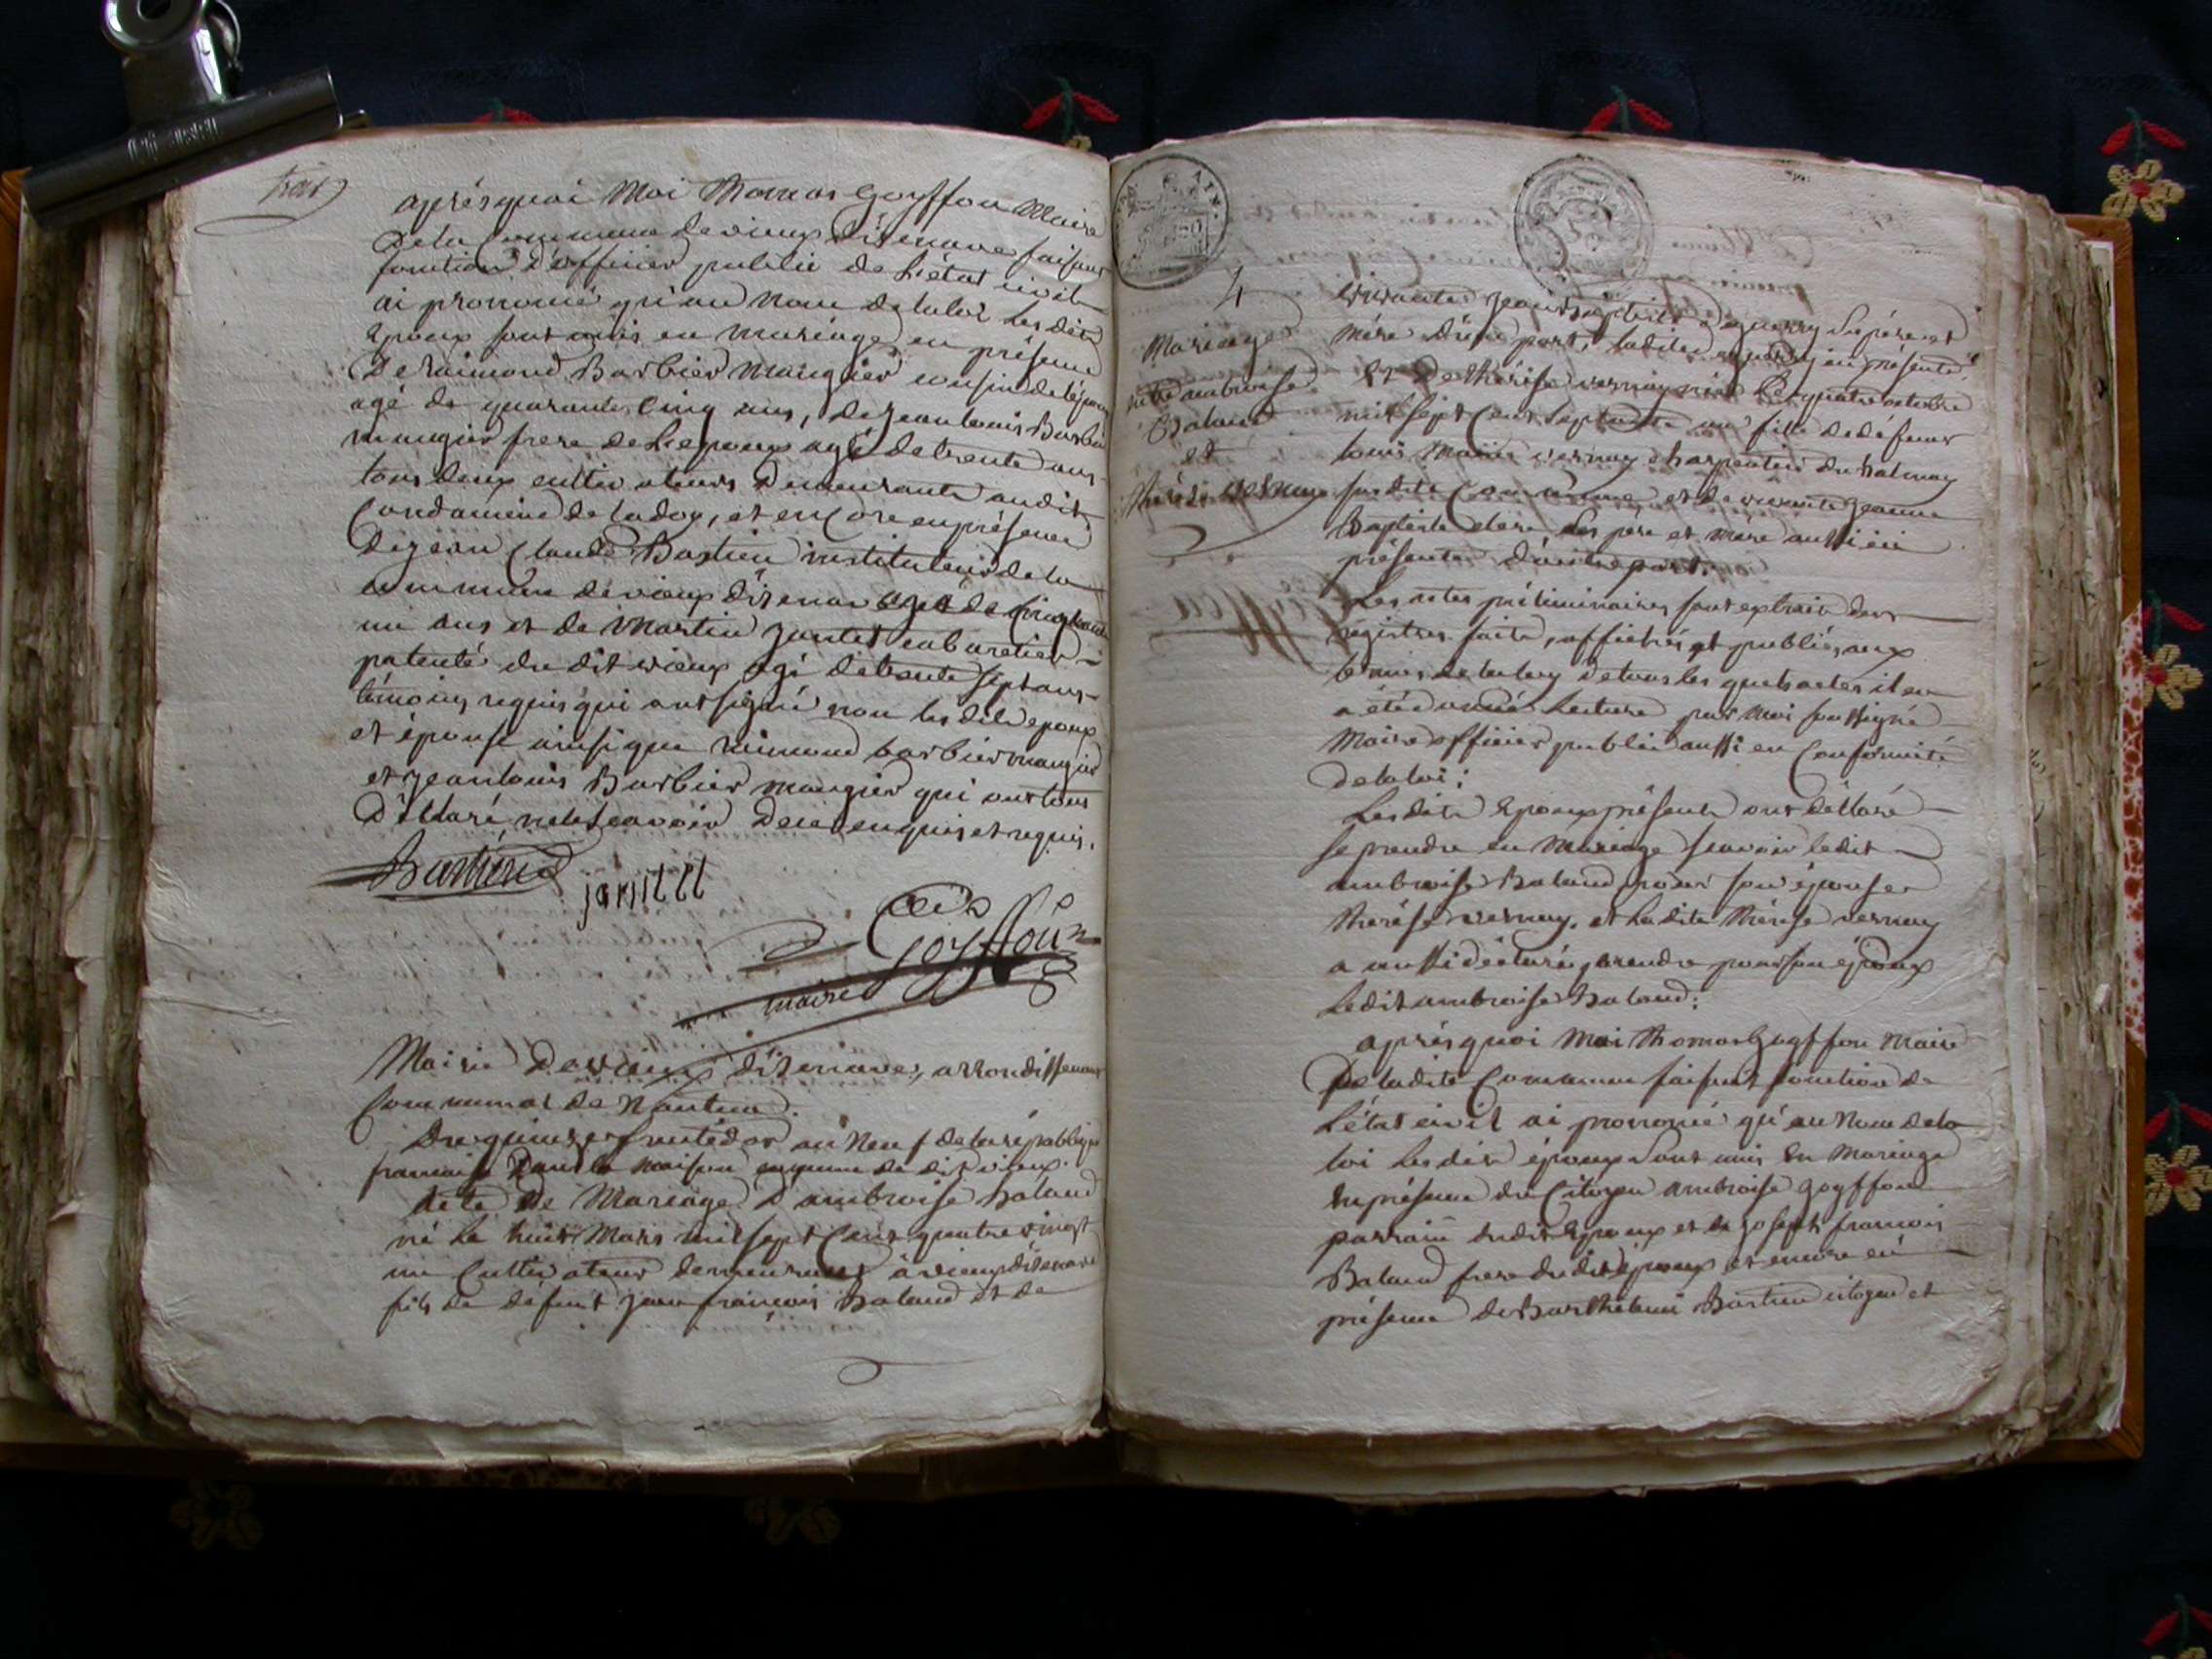 aprésquoi Moi Thomas Goyffon Maire
de la Commune de vieux d'izenave faisant
fonction d'officier public de l'état civil
ai prononcé qu'au nom de la loi les dits
Epoux sont unis en mariage en présence
De Raimond Barbier Maugier cousin de l'époux
agé de quarante cinq ans, de jean louis Barbier
maugier frere de l'epoux agé de trente ans
tous deux cultivateurs demeurants audit
Condamine de la doy, et encore en présence
de jean Claude Bastien instituteur de la
commune de vieux d'izenave agé de cinquante
un ans et de Martin jantet cabaretier
patenté du dit vieux agé de trente sept ans
témoins requis qui ont signé non les dits epoux
et épouse ainsi que raimond barbier maugier
et jean louis Barbier maugier qui ont tous
Déclaré ne le scavoir de ce enquis et requis.
Bastiend jantet
Goyffon
maire
Mairie De vieux d'izenave, arrondissement
Communal de Nantua.
Du quinze fructidor an Neuf de la république
francaise Dans la maison commune du dit vieux.
Acte De Mariage d'ambroise balaud
né le huit Mars mil sept Cent quatre vingt
un Cultivateur demeurant à vieux d'izenave
fils de défunt jean francois balaud et de
4
Mariage
entre ambroise
Balaud
et
Thérèse vernay
vivante jeanne baptiste goyffon ses père et
mère d'une part, ladite en présente
Et De thérèse vernay née le quatre octobre
mil sept Cent septante un fille de défunt
louis Marie vernay charpentier du balmay
susdite Commune et de vivante jeanne
baptiste clere ses pere et mère aussi ici
présente d'autre part.
Les actes préliminaires sont extrait des
régistres faits, affichés et publiés aux
termes de la loy de tous les quels actes il en
a été donné lecture par moi soussigné
Maire officier public aussi en Conformité
de la loi;
Les dits Epoux présents ont déclaré
se prendre en Mariage scavoir ledit
ambroise balaud pour son épouse
thérèse vernay. et la dite thérèse vernay
a aussi déclaré prendre pour son époux
ledit ambroise balaud;
aprésquoi Moi thomas Goyffon Maire
De ladite Commune faisant fonction de
l'état civil ai prononcé qu'au Nom de la
loi les dits époux sont unis En Mariage
En présence du Citoyen ambroise goyffon
parrain dudit Epoux et de joseph francois
Balaud frere du dit époux et encore en
présence de barthelemi Bastien citoyen et